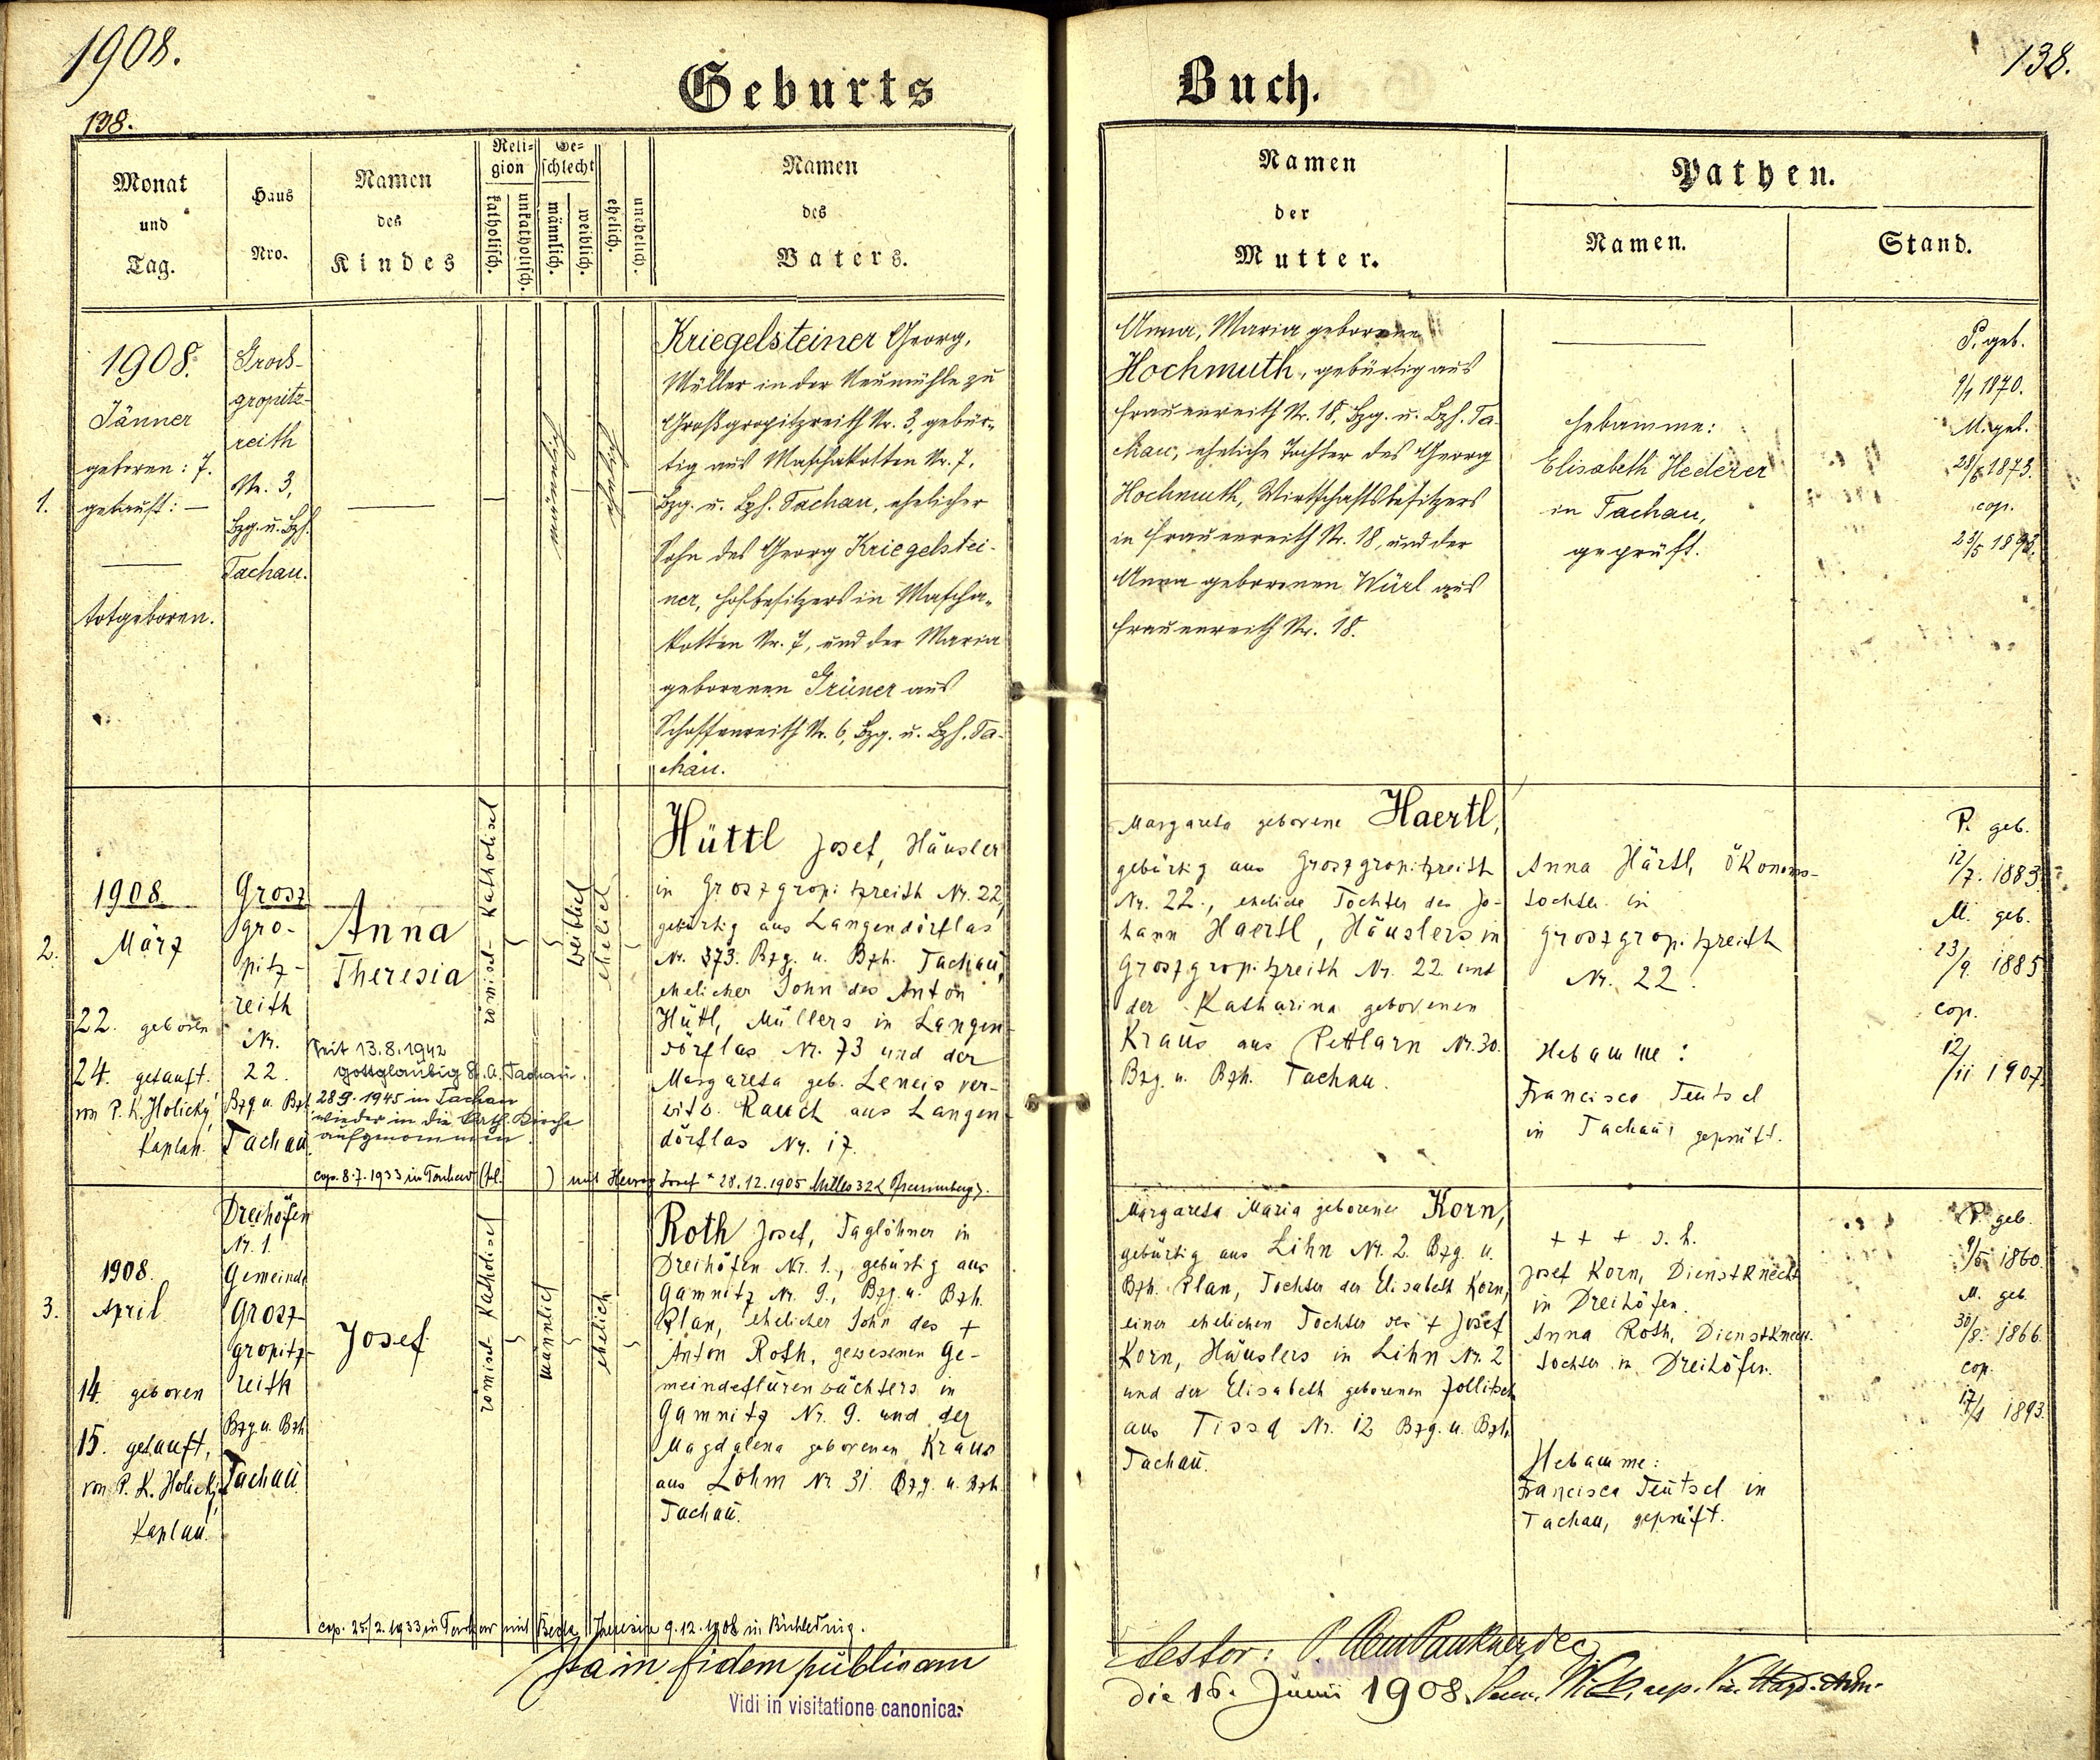 1908.
138.
Geburts
Buch.
138.
Monat
und
Tag.
Haus
Nro.
Namen
des
Kindes
Reli-
gion
katholisch.
unkatholisch.
Ge-
schlecht
männlich.
weiblich.
ehelich.
unehelich.
Namen
des
Vaters.
Namen
der
Mutter.
Pathen.
Namen.
Stand.
1.
1908.
Jänner
geboren: 7.
getauft: —
totgeboren.
Gross-
gropitz-
reith
Nr. 3,
Bzg. u. Bzh.
Tachau.
männlich
ehelich
Kriegelsteiner Georg,
Müller in der Neumühle zu
Großgropitzreith Nr. 3, gebür-
tig aus Maschakotten Nr. 7,
Bzg. u. Bzh. Tachau, ehelicher
Sohn des Georg Kriegelstei-
ner, Hofbesitzers in Mascha-
kotten Nr. 7, und der Maria
geborenen Grüner aus
Schossenreith Nr. 6, Bzg. u. Bzh. Ta-
chau.
Anna, Maria geborene
Hochmuth, gebürtig aus
Frauenreith Nr. 18, Bzg. u. Bzh. Ta-
chau, eheliche Tochter des Georg
Hochmuth, Wirtschaftsbesitzers
in Frauenreith Nr. 18, und der
Anna geborenen Würl aus
Frauenreith Nr. 18.
Hebamme:
Elisabeth Hederer
in Tachau,
geprüft.
P. geb.
9/4 1870.
M. geb.
1873.
cop.
23/5 1893.
2.
1908
März
22. geboren
24. getauft.
von P. K. Holický,
Kaplan.
Grosz
gro-
pitz-
reith
Nr.
22.
Bzg. u. Bzh.
Tachau.
Anna
Theresia
Seit 13.8.1942
gottgläubig B. A. Tachau.
28.9.1945 in Tachau
wieder in die kath. Kirche
aufgenommen.
cop. 8.7.1933 in Tachau (fil. ) mit Josef * 28.12.1905
römisch-katholisch
weiblich
ehelich
Hüttl Josef, Häusler
in Groszgropitzreith Nr. 22,
gebürtig aus Langendörflas
Nr. 373. Bzg. u. Bzh. Tachau,
ehelicher Sohn des Anton
Hüttl, Müllers in Langen-
dörflas Nr. 73 und der
Margareta geb. Leneis ver-
witw. Rauch aus Langen-
dörflas Nr. 17.
Margareta geborene Haertl,
gebürtig aus Groszgropitzreith
Nr. 22., eheliche Tochter des Jo-
hann Haertl, Häuslers in
Groszgropitzreith Nr. 22 und
der Katharina geborenen
Kraus aus Pettlarn Nr. 30.
Bzg. u. Bzh. Tachau.
Anna Härtl, Ökonoms-
tochter in
Groszgropitzreith
Nr. 22.
Hebamme:
Francisca Teutsch
in Tachau, geprüft.
P. geb.
12/7. 1883.
M. geb.
23/9. 1885
cop.
12/11 1907.
3.
1908.
April
14. geboren
15. getauft,
von P. K. Holický,
Kaplan.
Dreihöfen
Nr. 1.
Gemeinde
Grosz-
gropitz-
reith
Bzg. u. Bzh.
Tachau
Josef
römisch-katholisch
männlich
ehelich
Roth Josef, Taglöhner in
Dreihöfen Nr. 1., gebürtig aus
Gamnitz Nr. 9., Bzg. u. Bzh.
Plan, ehelicher Sohn des +
Anton Roth, gewesenen Ge-
meindeflurenwächters in
Gamnitz Nr. 9. und der
Magdalena geborenen Kraus
aus Lohm Nr. 31. Bzg. u. Bzh.
Tachau.
Margareta Maria geborene Korn,
gebürtig aus Lihn Nr. 2. Bzg. u.
Bzh. Plan, Tochter der Elisabeth Korn,
einer ehelichen Tochter des + Josef
Korn, Häuslers in Lihn Nr. 2
und der Elisabeth geborenen Zollitsch
aus Tissa Nr. 12 Bzg. u. Bzh.
Tachau.
+ + +
Josef Korn, Dienstknecht
in Dreihöfen.
Anna Roth, Dienstknech.
tochter in Dreihöfen.
Hebamme:
Francisca Teutsch in
Tachau, geprüft.
P. geb.
9/5. 1860.
M. geb.
30/8. 1866.
cop.
17/4 1893.
cop. 25./2.1933 in Tachau mit Theresia 9.12.1908 in
Ita in fidem publicam
Vidi in visitatione canonica:
testor:
die 16. Junii 1908.